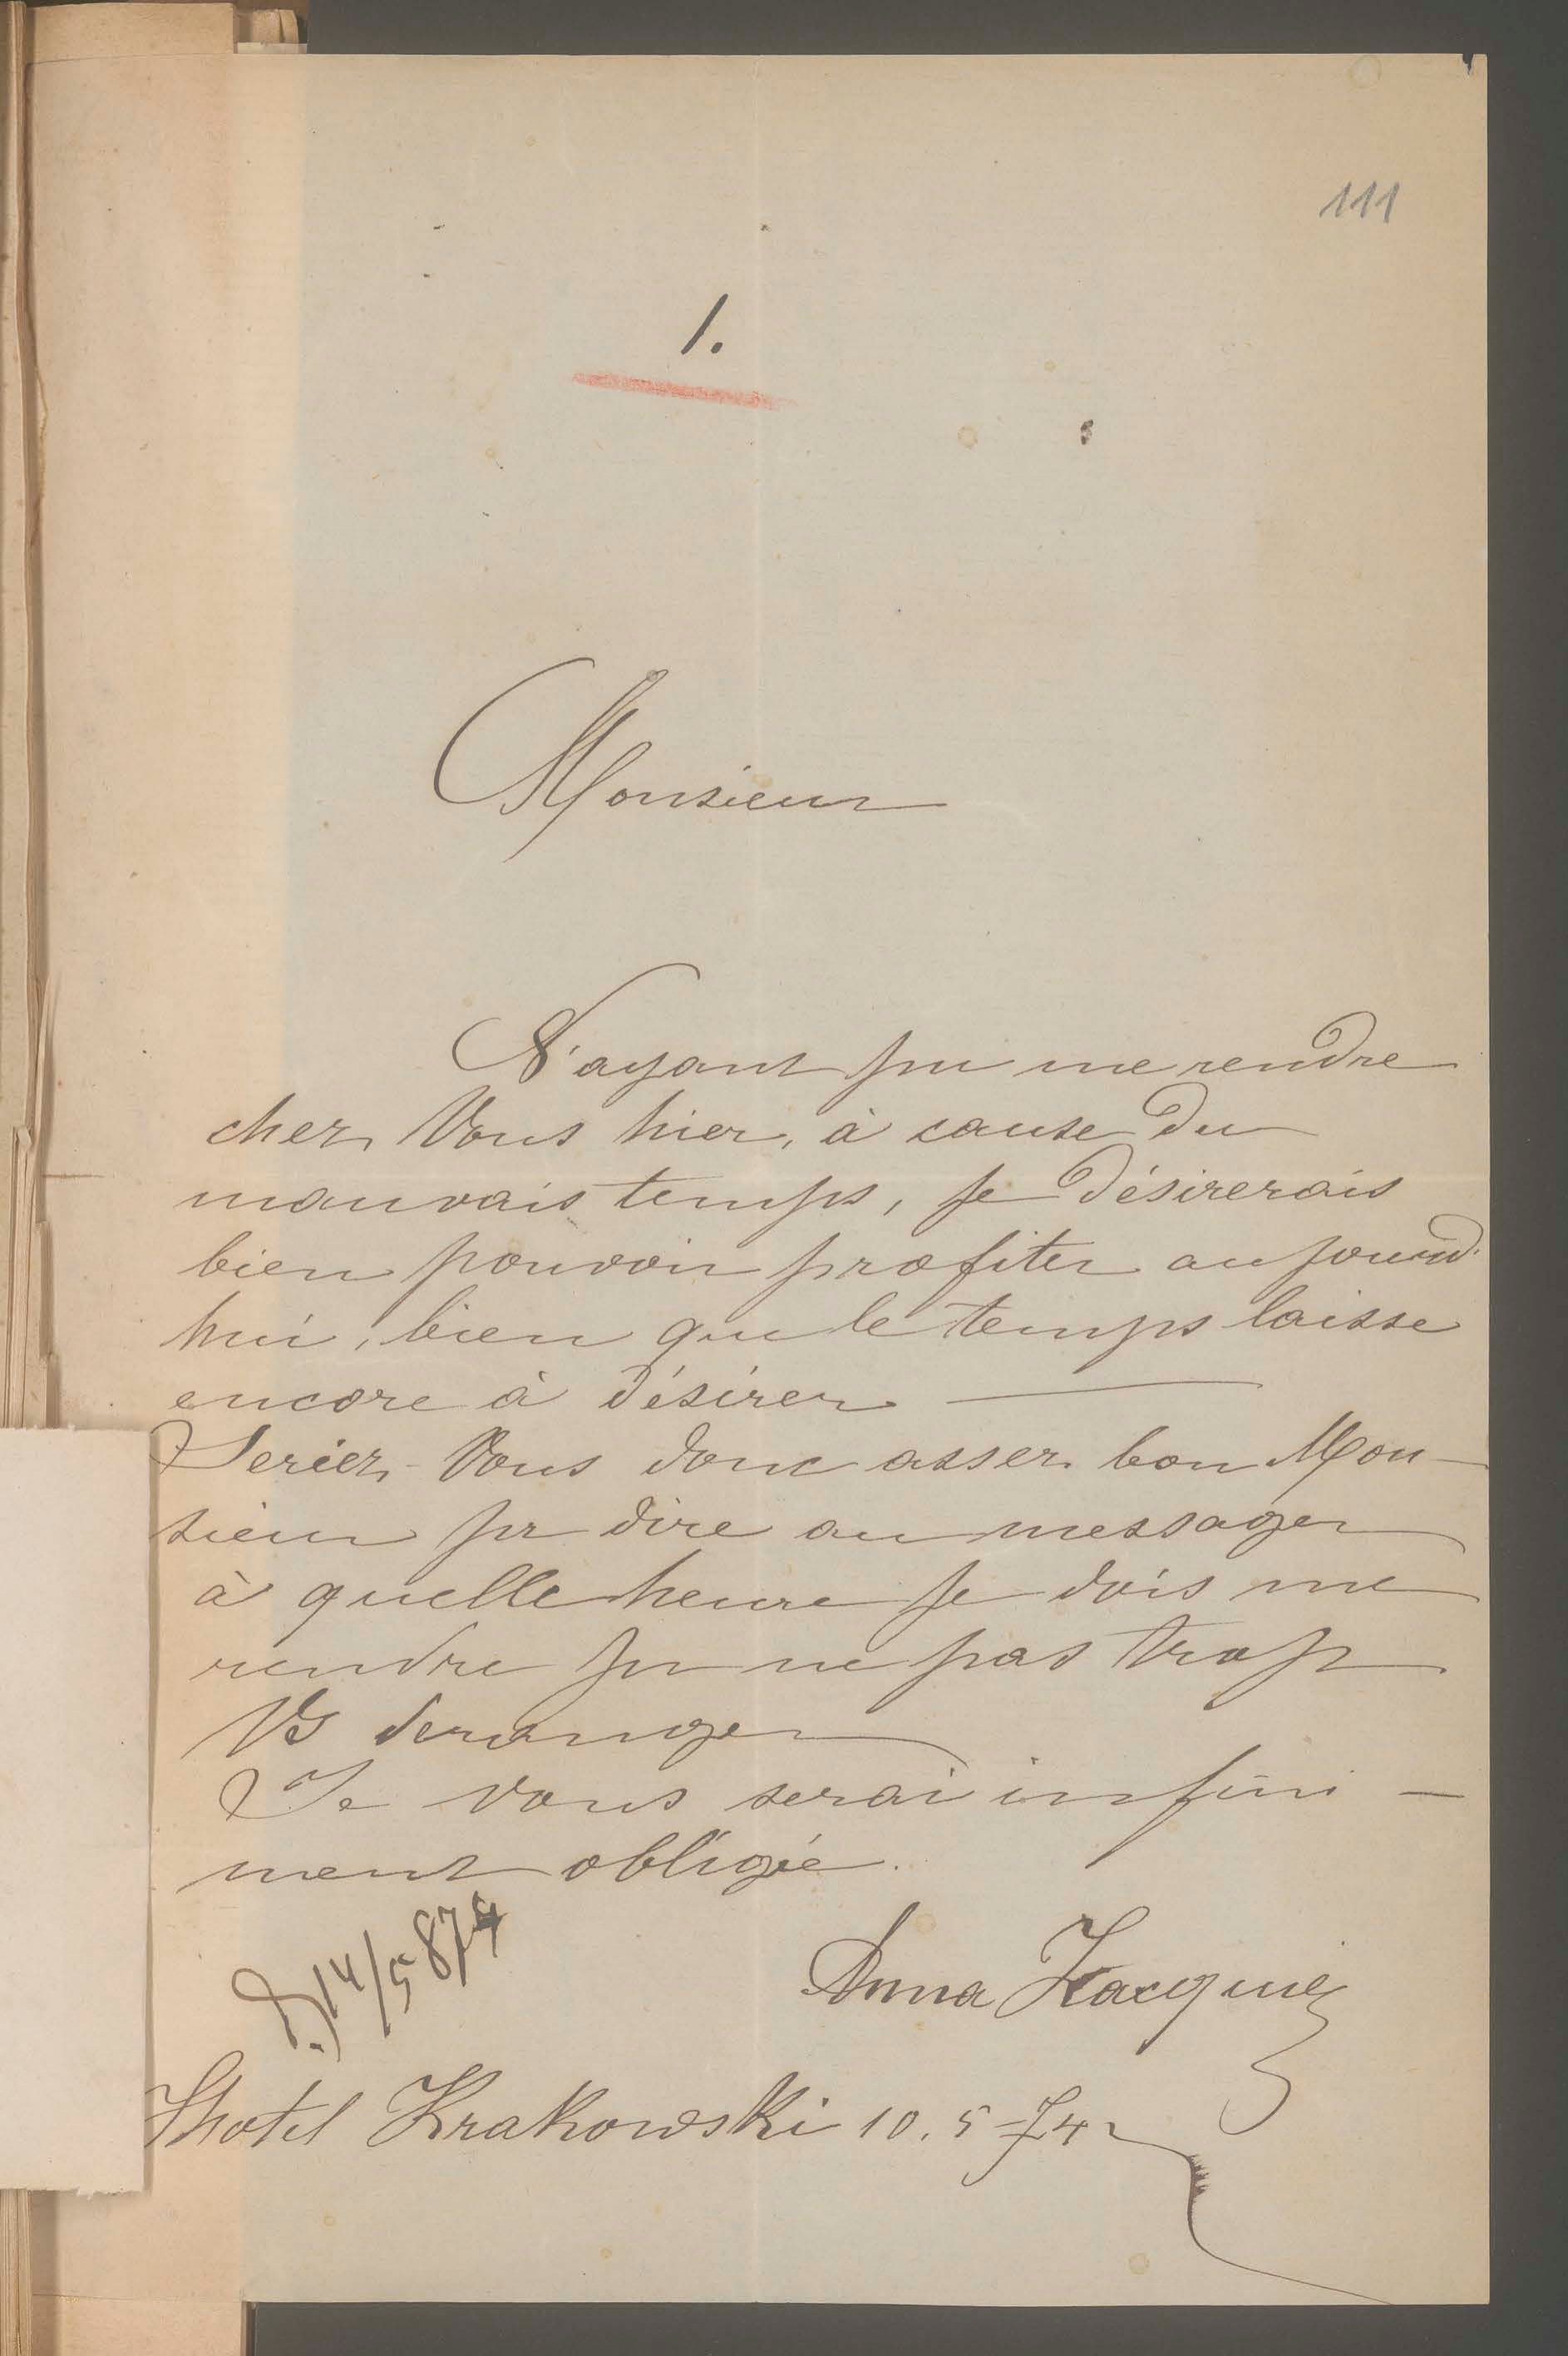 111
1.
Monsieur
N'ayant pu me rendre
chez Vous hier, à cause du
mauvais temps, je désirerais
bien pouvoir profiter aujourd'
hui, bien que le temps laisse
encore à désirer —
Seriez-Vous donc assez bon Mon-
sieur pr dire au messager
à quelle heure je dois me
rendre pr ne pas trop
Vs deranger
Je vous serai infini-
ment obligée.
14/5 874
Anna
Hotel Krakowski 10.5-74